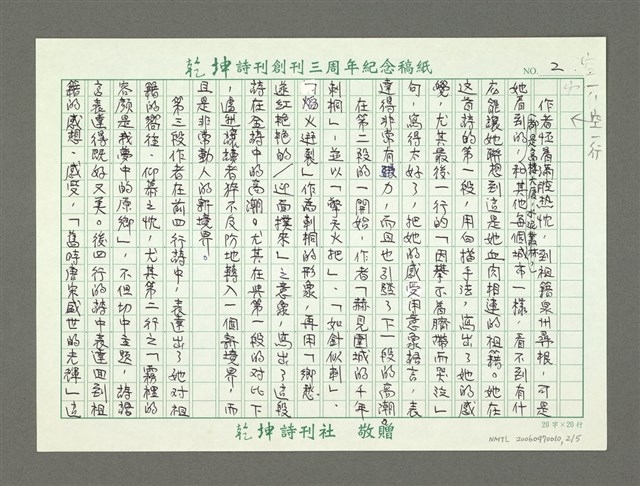 乾坤詩刊創刊三周年紀念稿紙
NO. 2
空一行
作者怀着滿腔热忱，到祖籍泉州尋根，可是
她看到的，和其他每個城市一樣，看不到有什
広能讓她聯想到這是她血肉相連的祖籍。她在
這首詩的第一段，用白描手法，寫出了她的感
覺，尤其最後一行的「因攀不着臍帶而哭泣」
句，寫得太好了，把她的感受用意象語言，表
達得非常有張力，而且也引發了下一段的高潮。
在第二段的一開始，作者「赫見圍城的千年
刺桐」，並以「擎天火把」、「如針似刺」、
「焰火迸裂」作為刺桐的形象，再用「鄉愁
遂紅艳艳的／迎面撲來」之意象，寫出了這段
詩在全詩中的高潮。尤其在與第一段的对比下
，盧州讓讀者猝不及防地轉入一個新境界，而
且是非常動人的新境界。
第三段作者在前四行詩中，表達出了她对祖
籍的嚮往、仰慕之忱，尤其第二行之「霧裡的
容顏是我夢中的原鄉」，不但切中主題，詩語
言表達得既好又美。後四行的詩中表達回到祖
籍的感想、感受，「舊時唐宋盛世的光輝」這
20字×20行
乾坤詩刊社 敬贈
NMTL 20060970010, 2/5